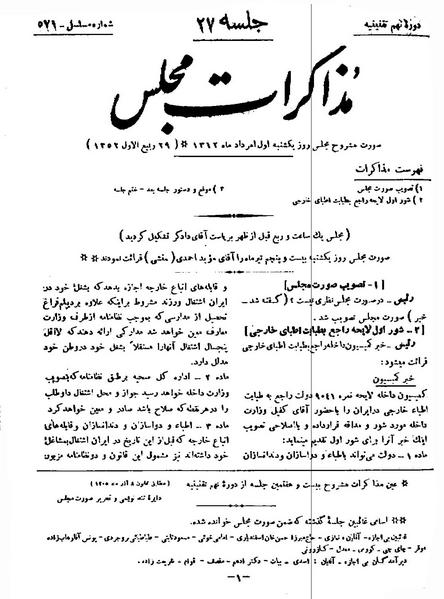 دورۀ نهم تقنینیه
جلسه ۲۷
شماره مسلسل - ۵۲۱
مذاکرات مجلس
صورت مشروح مجلس روز یکشنبه اول امرداد ماه ۱۳۱۲ * ( ۲۹ ربیع الاول ۱۳۵۲ )
فهرست مذاکرات
۱) تصویب صورت مجلس
۲) شور اول لایحه راجع بطبابت اطبای خارجی
۳) موقع و دستور جلسه بعد - ختم جلسه
( مجلس یک ساعت و ربع قبل از ظهر بریاست آقای دادگر تشکیل گردید )
صورت مجلس روز یکشنبه بیست و پنجم تیر ماه را آقای مؤید احمدی ( منشی ) قرائت نمودند **
[ ۱- تصویب صورت مجلس ]
رئیس - در صورت مجلس نظری نیست ؟ ( گفته شد -
خیر ) صورت مجلس تصویب شد .
[ ۲- شور اول لایحه راجع بطبابت اطبای خارجی ]
رئیس - خبر کمیسیون داخله راجع بطبابت اطبای خارجی
قرائت میشود :
خبر کمیسیون
کمیسیون داخله لایحه نمره ۹۰۴۱ دولت راجع به طبابت
اطباء خارجی در ایران را با حضور آقای کفیل وزارت
داخله مورد شور و مداقه قرار داده و با اصلاحی تصویب
اینک خبر آنرا برای شور اول تقدیم مینماید :
ماده ۱ - دولت می‌تواند باطباء و دواسازان و دندانسازان
و قابله‌های اتباع خارجه اجازه بدهد که بشغل خود در
ایران اشتغال ورزند مشروط براینکه علاوه بر دیپلم فراغ
تحصیل از مدارسی که بموجب نظامنامه از طرف وزارت
معارف معین خواهد شد مدارکی ارائه دهند که لااقل
پنجسال اشتغال آنها را مستقلاً بشغل خود در وطن خود
مدلل دارد .
ماده ۲ - اداره کل صحیه بر طبق نظامنامه که بتصویب
وزارت داخله خواهد رسید جواز و محل اشتغال داوطلب
را در هر نقطه که صلاح باشد صادر و معین خواهد کرد
ماده ۳ - اطباء و دواسازان و دندانسازان و قابله‌های
اتباع خارجه که قبل از این تاریخ در ایران اشتغال بمشاغل
خود داشته‌اند نیز مشمول این قانون و دو نظامنامه مزبور
* عین مذاکرات مشروح بیست و هفتمین جلسه از دورۀ نهم تقنینیه
( مطابق قانون ۸ آذر ماه ۱۳۰۵ )
دایرۀ تند نویسی و تحریر صورت مجلس
** اسامی غائبین جلسۀ گذشته که ضمن صورت مجلس خوانده شده .
- ۱ -